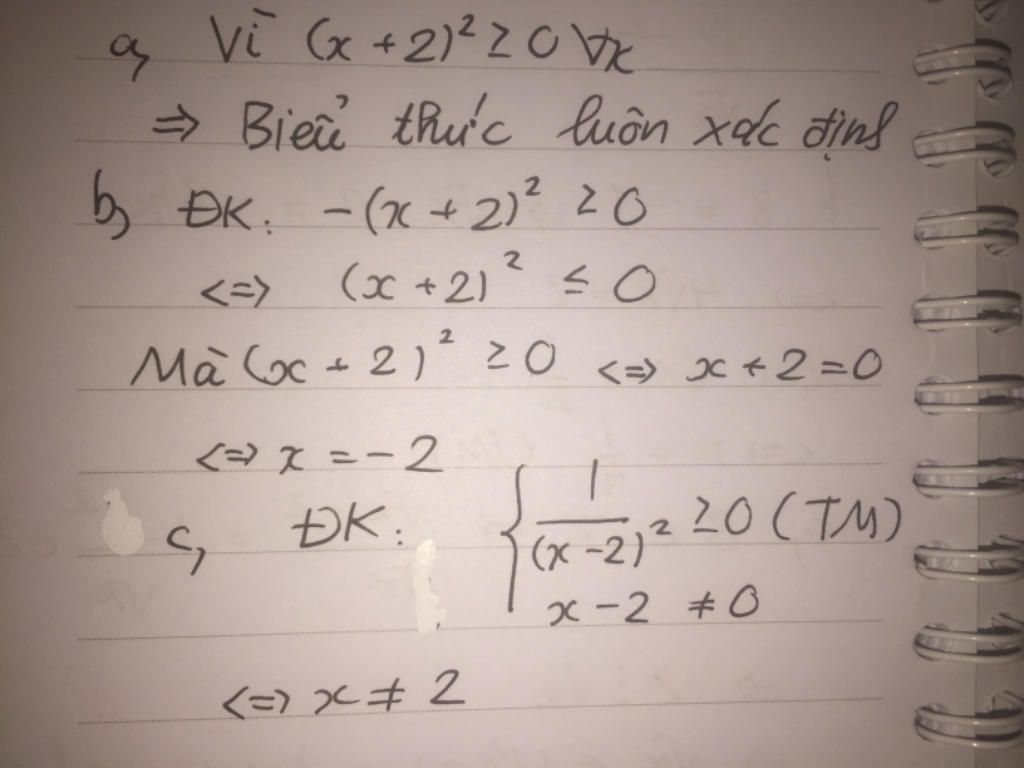 a, Vì (x + 2)² ≥ 0 ∀x
⇒ Biểu thức luôn xác định
b, ĐK: -(x + 2)² ≥ 0
<=> (x + 2)² ≤ 0
Mà (x + 2)² ≥ 0 <=> x + 2 = 0
<=> x = -2
c, ĐK: { 1/(x - 2)² ≥ 0 (TM)
x - 2 ≠ 0
<=> x ≠ 2